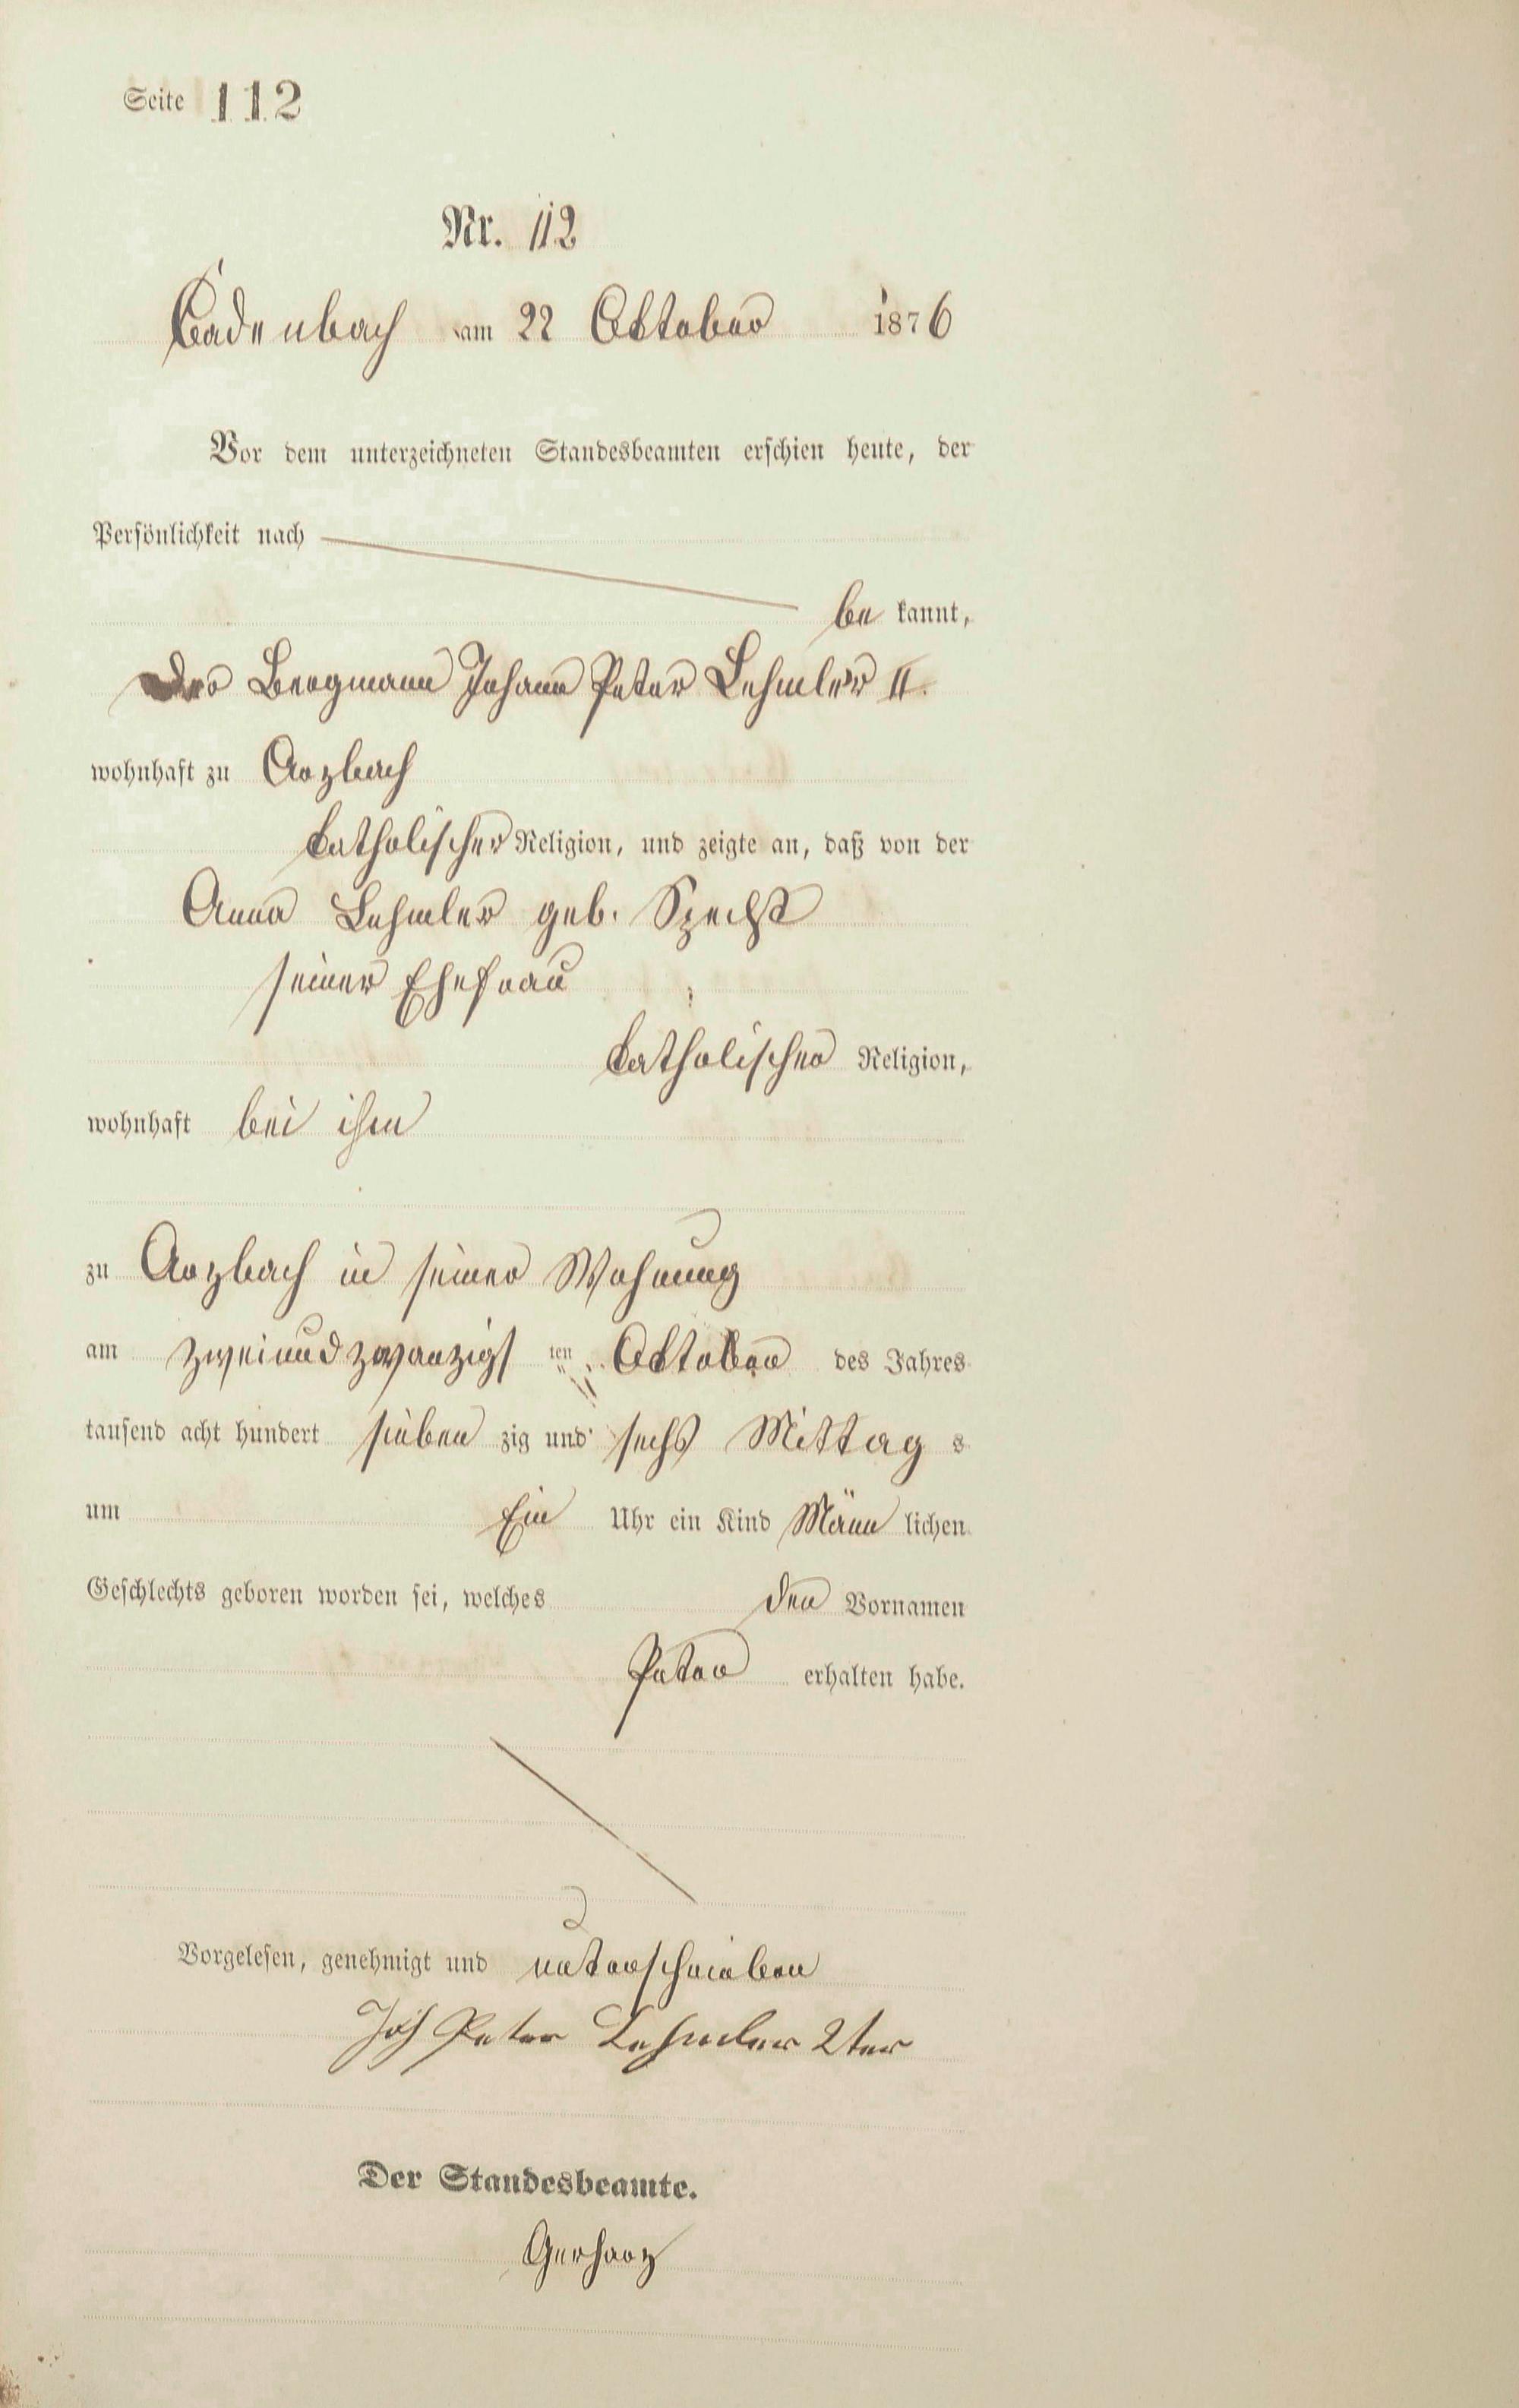 Seite 112
Nr. 112
Cadenbach am 22 Oktober 1876
Vor dem unterzeichneten Standesbeamten erschien heute, der
Persönlichkeit nach
be kannt,
Der Bergmann Johann Peter Lehmler II.
wohnhaft zu Arzbach
katholischer Religion, und zeigte an, daß von der
Anna Lehmler geb. Specht
seiner Ehefrau
katholischer Religion,
wohnhaft bei ihm
zu Arzbach in seiner Wohnung
am zweiundzwanzigs ten Oktober des Jahres
tausend acht hundert sieben zig und sechs Mittag s
um Ein Uhr ein Kind Männ lichen
Geschlechts geboren worden sei, welches den Vornamen
Peter erhalten habe.
Vorgelesen, genehmigt und unterschrieben
Joh Peter Lehmler 2ter
Der Standesbeamte.
Gerharz